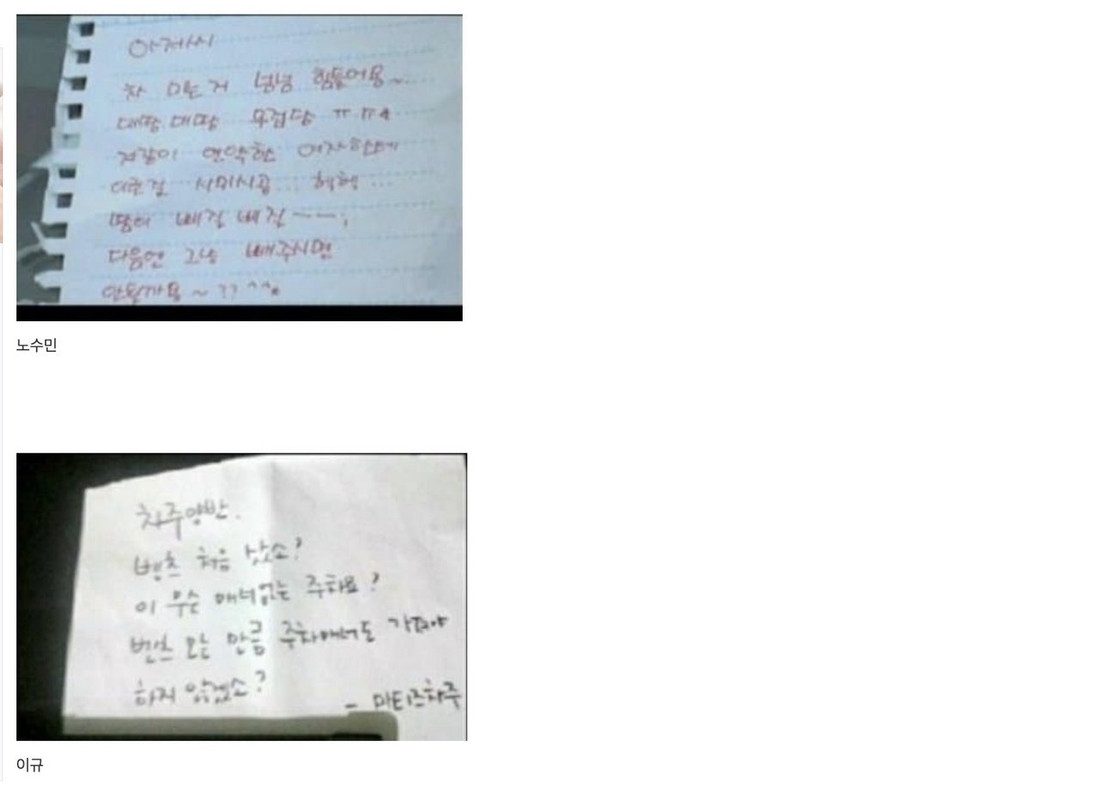 아저씨
차 미는거 넘넘 힘들어용~...
대땅 대땅 무겁당 ㅠ.ㅠ
저같이 연약한 여자한테
이런걸 시미시공... 헤헤...
땀이 삐질 삐질 ㅡㅡ;
다음엔 그냥 빼주시면
안될까용~?? ^^*
노수민
차주양반.
벤츠 처음 샀소?
이 무슨 매너없는 주차요?
벤츠 모는 만큼 주차매너도 가져야
하지 않겠소?
- 마티즈차주
이규